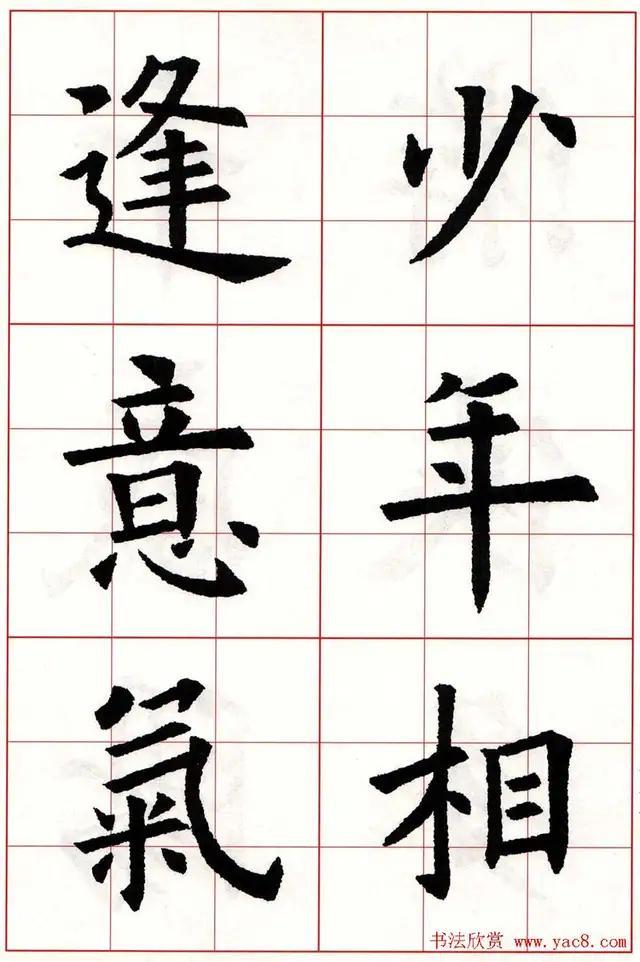 少年相
逢意氣
书法欣赏 www.yac8.com